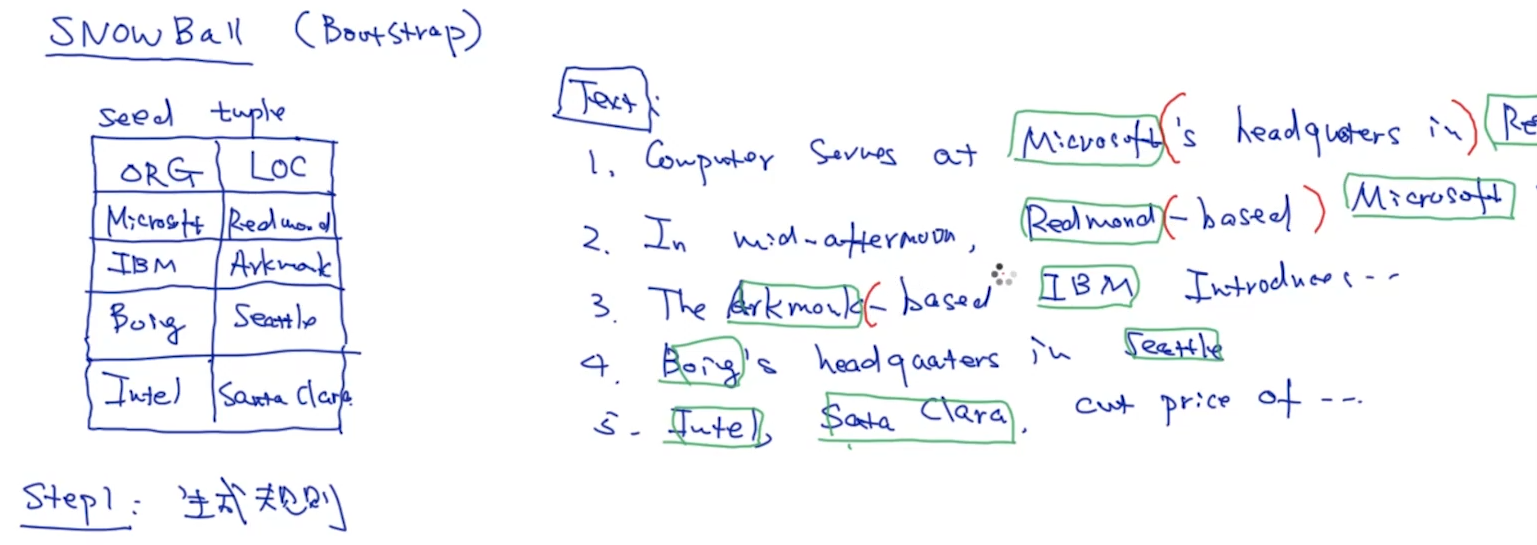 SNOWBall (Bootstrap)
seed tuple
ORG LOC
Microsoft Redmond
IBM Arkmok
Boing Seattle
Intel Santa Clara
Text:
1. Computer Serves at Microsoft's headquaters in Re
2. In mid-afternoon, Redmond-based Microsoft
3. The Arkmonk-based IBM Introduces ...
4. Boing's headquaters in Seattle
5. Intel, Sata Clara, cut price of ...
Step1: 生成规则